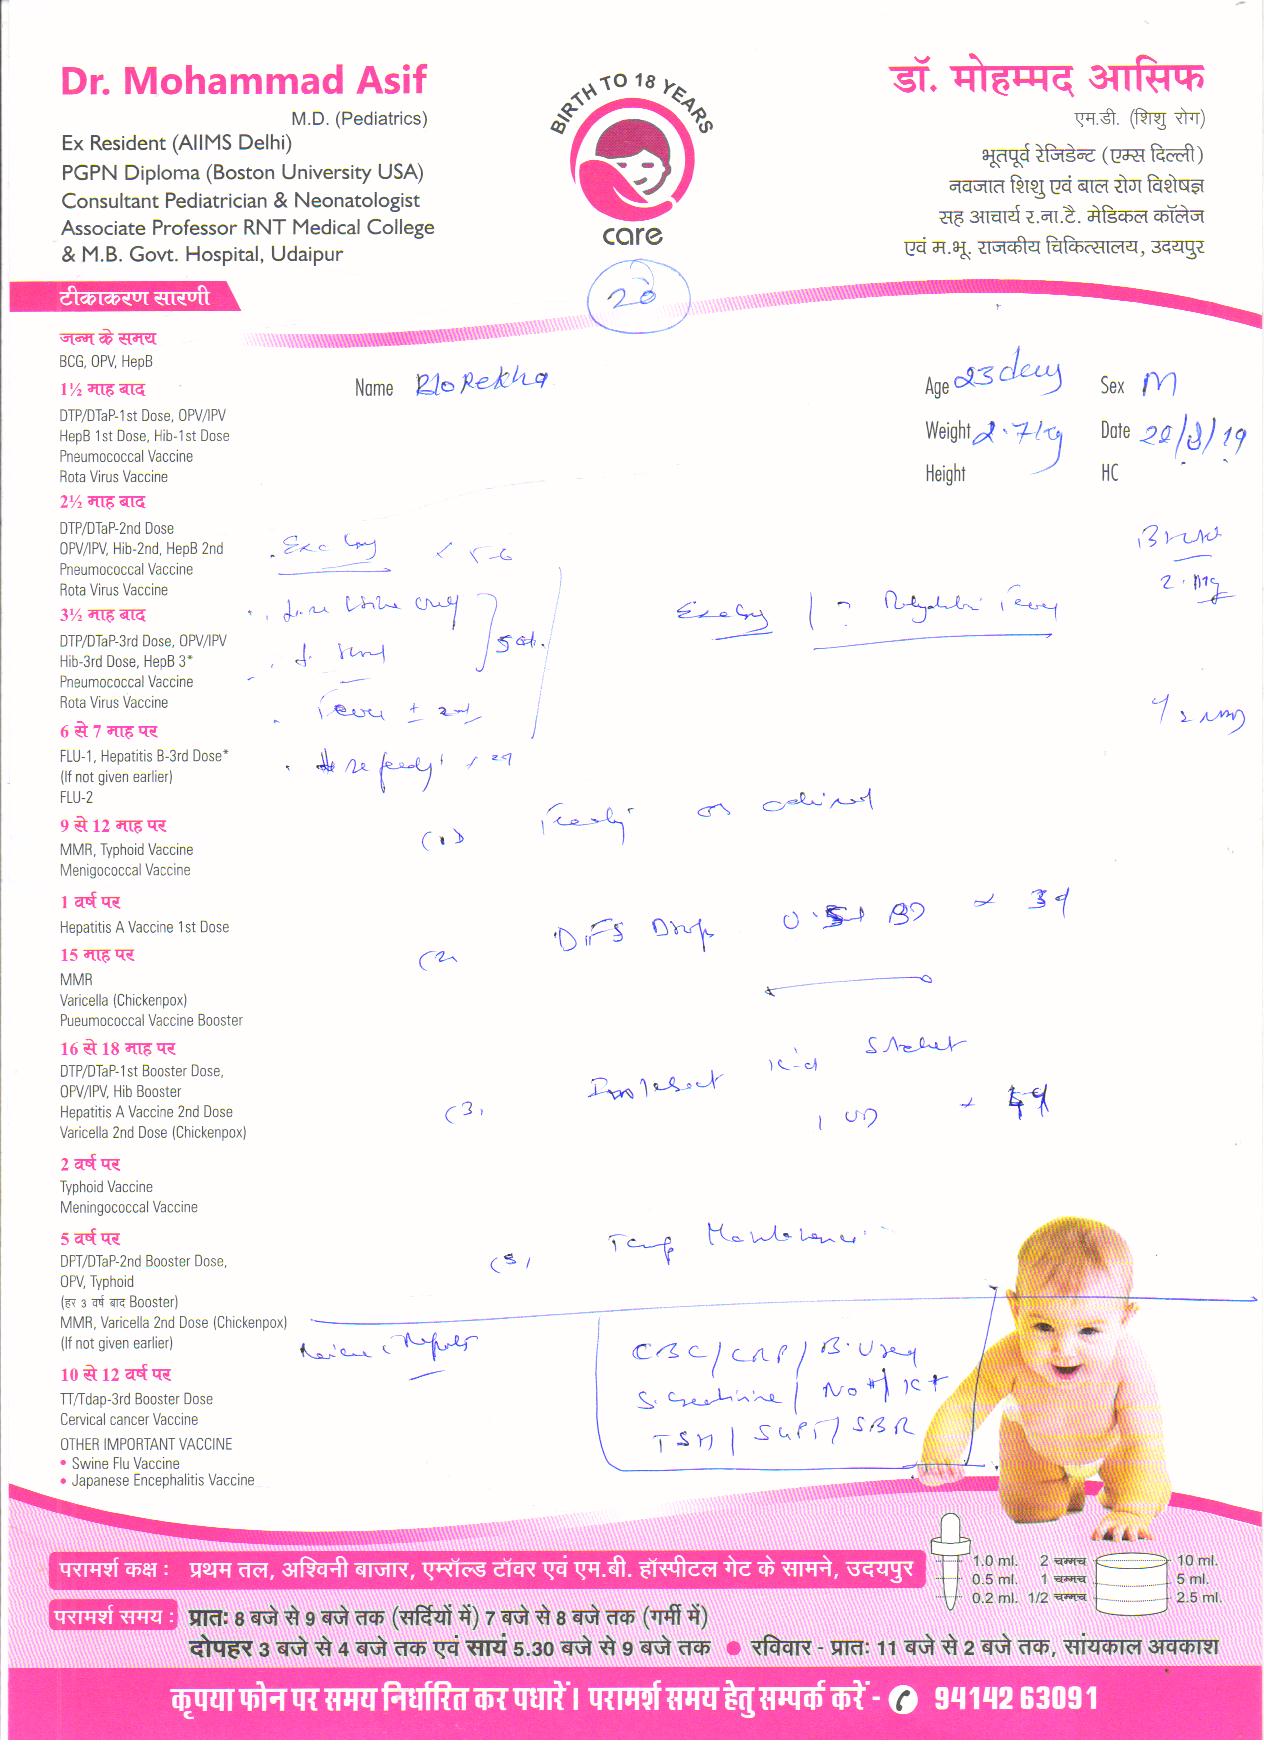 Dr. Mohammad Asif
M.D. (Pediatrics)
Ex Resident (AIIMS Delhi)
PGPN Diploma (Boston University USA)
Consultant Pediatrician & Neonatologist
Associate Professor RNT Medical College
& M.B. Govt. Hospital, Udaipur
BIRTH TO 18 YEARS
care
डॉ. मोहम्मद आसिफ
एम.डी. (शिशु रोग)
भूतपूर्व रेजिडेन्ट (एम्स दिल्ली)
नवजात शिशु एवं बाल रोग विशेषज्ञ
सह आचार्य र.ना.टै. मेडिकल कॉलेज
एवं म.भू. राजकीय चिकित्सालय, उदयपुर
टीकाकरण सारणी
जन्म के समय
BCG, OPV, HepB
1½ माह बाद
DTP/DTaP-1st Dose, OPV/IPV
HepB 1st Dose, Hib-1st Dose
Pneumococcal Vaccine
Rota Virus Vaccine
2½ माह बाद
DTP/DTaP-2nd Dose
OPV/IPV, Hib-2nd, HepB 2nd
Pneumococcal Vaccine
Rota Virus Vaccine
3½ माह बाद
DTP/DTaP-3rd Dose, OPV/IPV
Hib-3rd Dose, HepB 3*
Pneumococcal Vaccine
Rota Virus Vaccine
6 से 7 माह पर
FLU-1, Hepatitis B-3rd Dose*
(If not given earlier)
FLU-2
9 से 12 माह पर
MMR, Typhoid Vaccine
Menigococcal Vaccine
1 वर्ष पर
Hepatitis A Vaccine 1st Dose
15 माह पर
MMR
Varicella (Chickenpox)
Pueumococcal Vaccine Booster
16 से 18 माह पर
DTP/DTaP-1st Booster Dose,
OPV/IPV, Hib Booster
Hepatitis A Vaccine 2nd Dose
Varicella 2nd Dose (Chickenpox)
2 वर्ष पर
Typhoid Vaccine
Meningococcal Vaccine
5 वर्ष पर
DPT/DTaP-2nd Booster Dose,
OPV, Typhoid
(हर 3 वर्ष बाद Booster)
MMR, Varicella 2nd Dose (Chickenpox)
(If not given earlier)
10 से 12 वर्ष पर
TT/Tdap-3rd Booster Dose
Cervical cancer Vaccine
OTHER IMPORTANT VACCINE
• Swine Flu Vaccine
• Japanese Encephalitis Vaccine
Name B/o Rekha
Age 23 day Sex M
Weight 2.7 kg Date 22/3/19
Height HC
Fever
(1)
(2) Drop 0.5 BD 3d
(3) Kid Sachet
1 OD
(5) Temp
CBC/CRP/B. Urea
S. Creatinine/Na+/K+
TSH/SGPT/SBR
1.0 ml. 2 चम्मच 10 ml.
0.5 ml. 1 चम्मच 5 ml.
0.2 ml. 1/2 चम्मच 2.5 ml.
परामर्श कक्ष : प्रथम तल, अश्विनी बाजार, एमरॉल्ड टॉवर एवं एम.बी. हॉस्पीटल गेट के सामने, उदयपुर
परामर्श समय : प्रातः 8 बजे से 9 बजे तक (सर्दियों में) 7 बजे से 8 बजे तक (गर्मी में)
दोपहर 3 बजे से 4 बजे तक एवं सायं 5.30 बजे से 9 बजे तक ● रविवार - प्रातः 11 बजे से 2 बजे तक, सांयकाल अवकाश
कृपया फोन पर समय निर्धारित कर पधारें। परामर्श समय हेतु सम्पर्क करें - 94142 63091